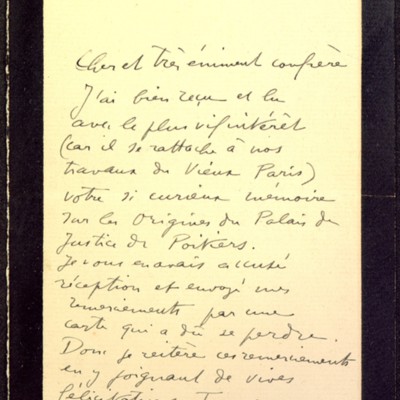 Cher et très éminent confrère
J'ai bien reçu et lu
avec le plus vif intérêt
(car il se rattache à nos
travaux du Vieux Paris)
votre si curieux mémoire
sur les Origines du Palais de
Justice de Poitiers.
Je vous en avais accusé
réception et envoyé mes
remerciements par une
carte qui a dû se perdre.
Donc je réitère ces remerciements
en y joignant de vives
félicitations